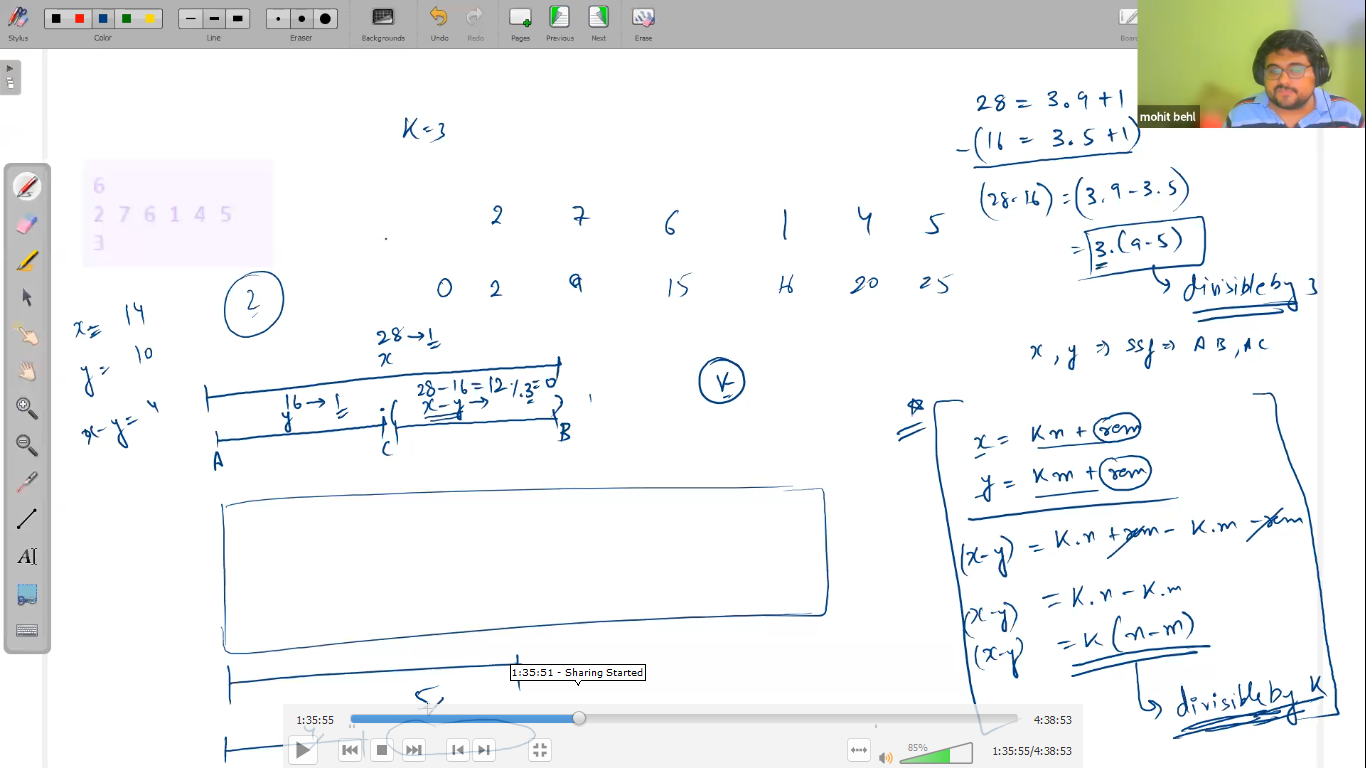 Stylus
Color
Line
Eraser
Backgrounds
Undo
Redo
Pages
Previous
Next
Erase
Board
mohit behl
K=3
6
2 7 6 1 4 5
3
2 7 6 1 4 5
0 2 9 15 16 20 25
2
x = 14
y = 10
x-y = 4
28 → 1
x
16 → 1
y
28-16 = 12 % 3 = 0
x-y →
A
C
B
K
28 = 3.9+1
-(16 = 3.5+1)
(28-16) = (3.9-3.5)
= 3.(9-5)
→ divisible by 3
x, y ⇒ ssf ⇒ AB, AC
x = Kn + rem
y = Km + rem
(x-y) = K.n + rem - K.m - rem
(x-y) = K.n - K.m
(x-y) = K(n-m)
→ divisible by K
AI
1:35:51 - Sharing Started
5
1:35:55
4:38:53
85%
1:35:55/4:38:53